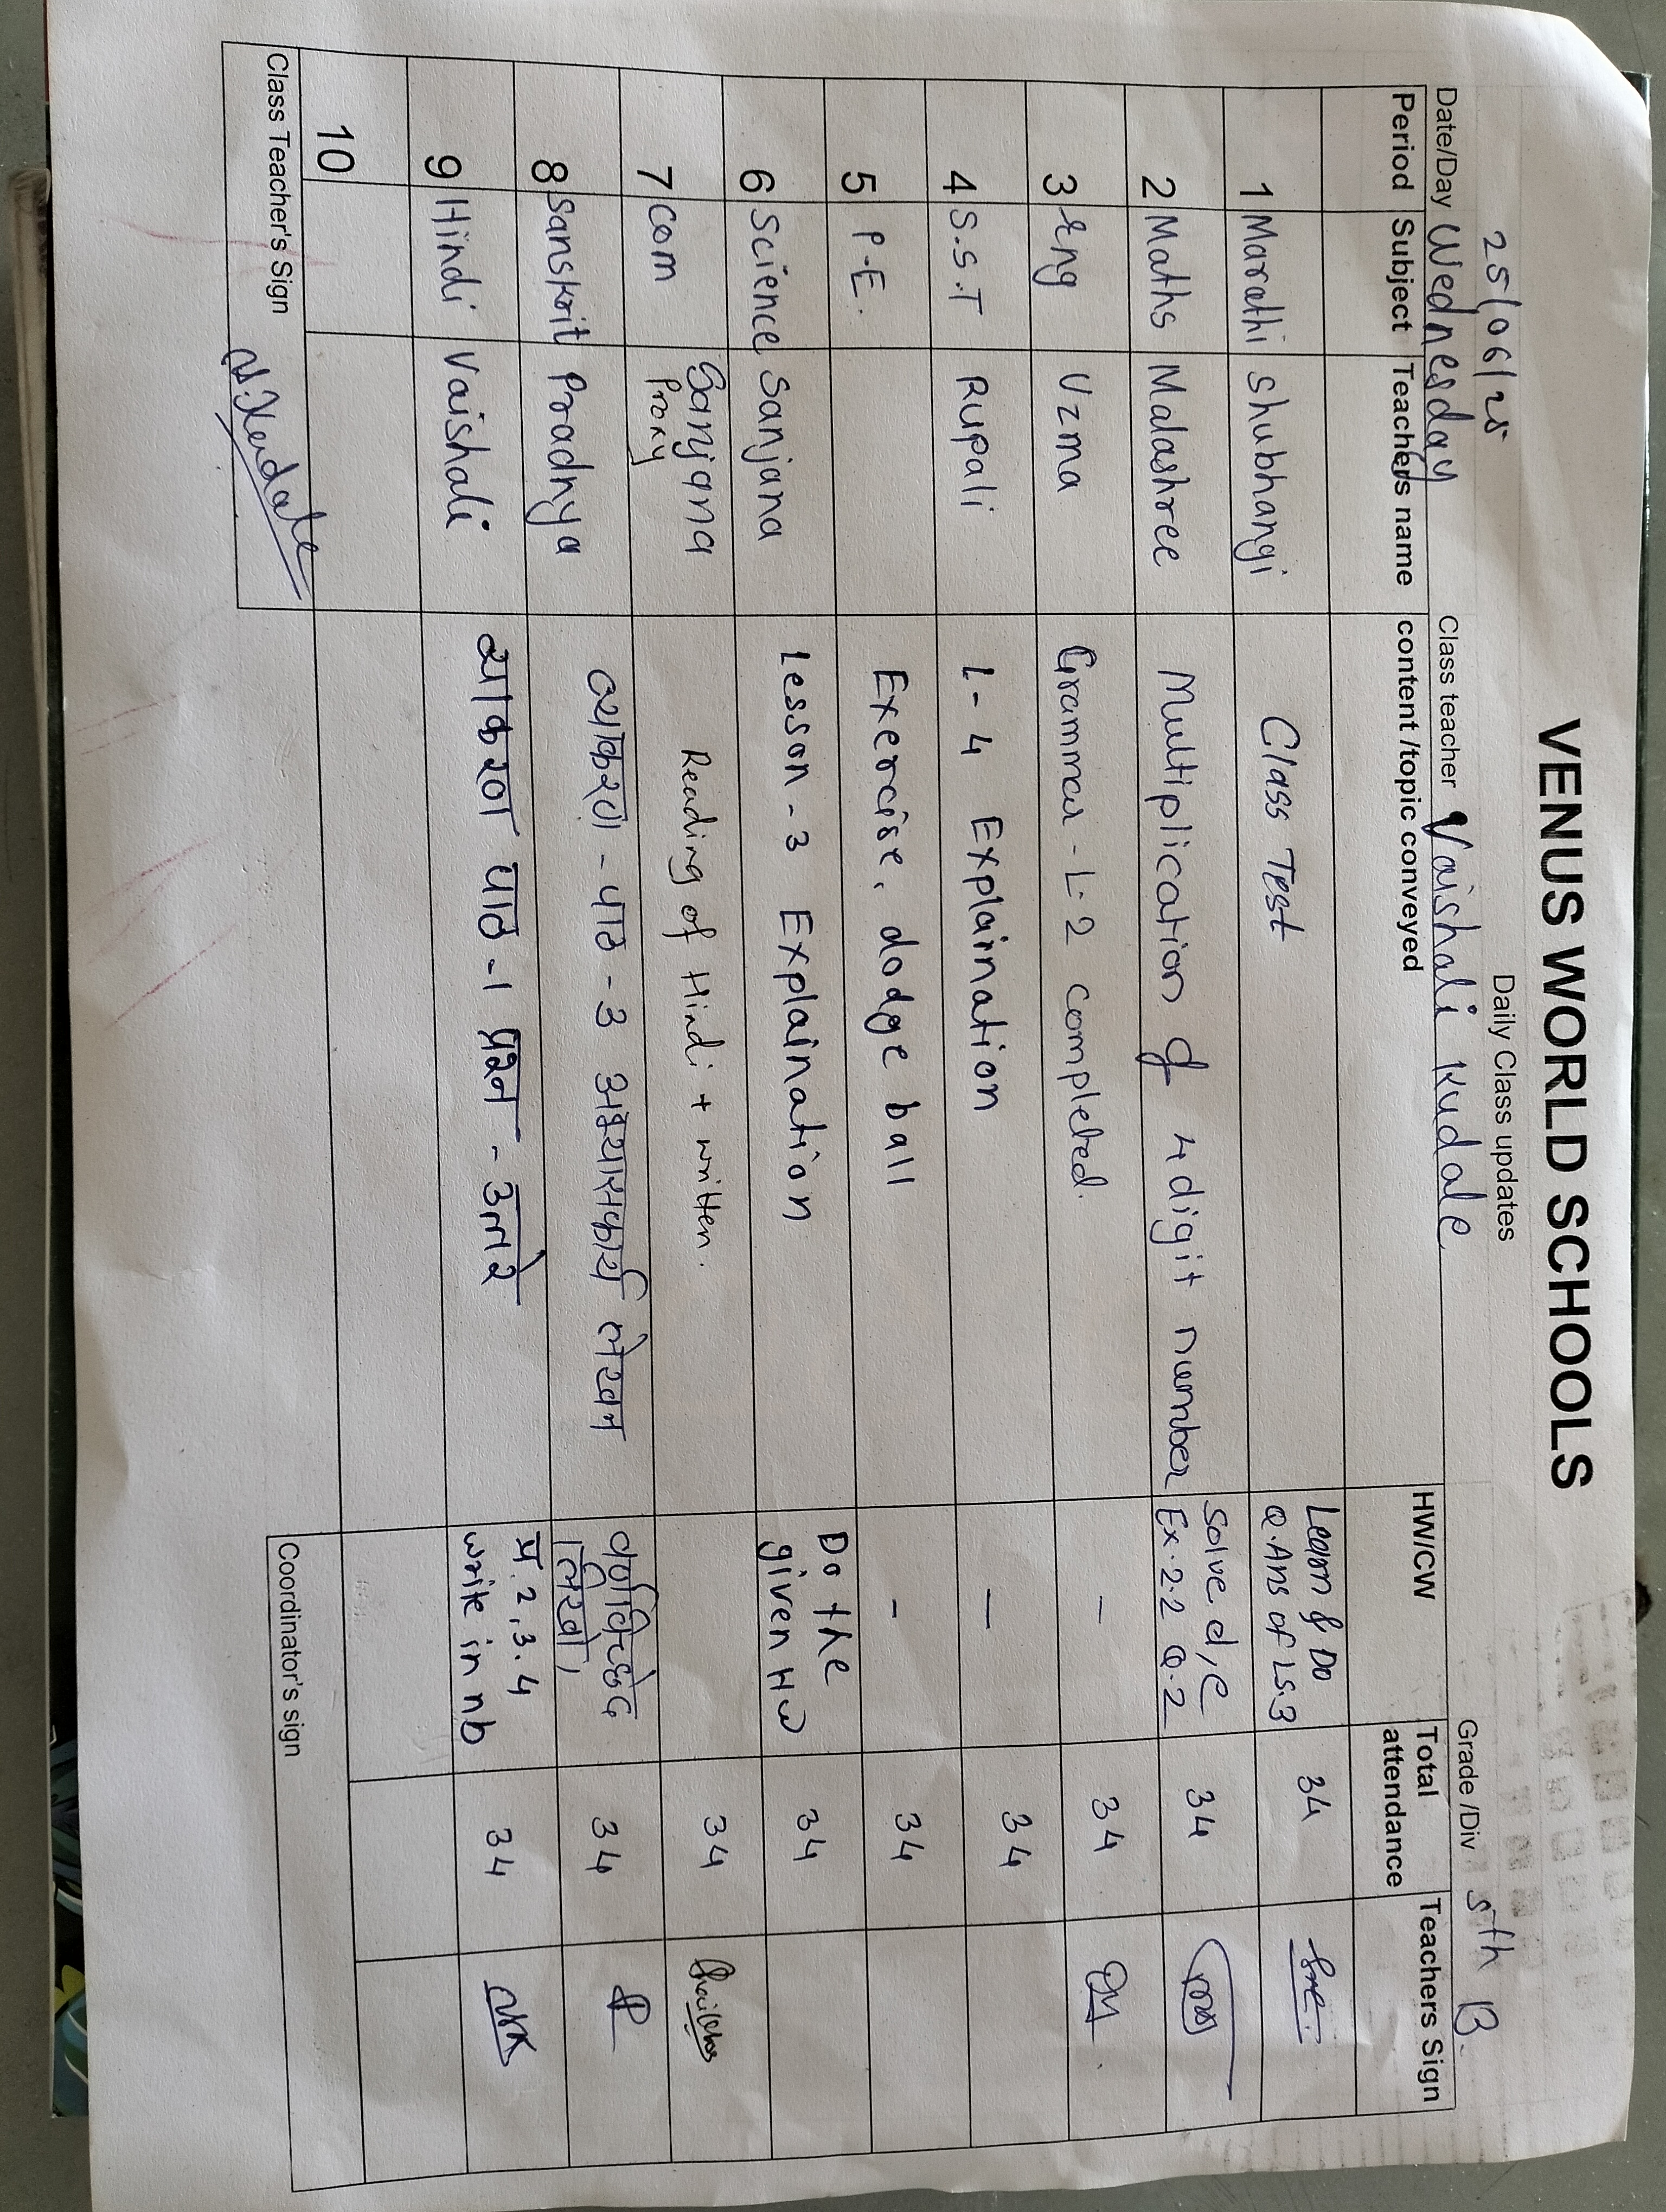 VENUS WORLD SCHOOLS
Daily Class updates
25/06/25
Date/Day Wednesday Class teacher Vaishali Kudale Grade /Div 5th B.
Period Subject Teachers name content /topic conveyed HW/CW Total attendance Teachers Sign
1 Marathi Shubhangi Class Test Learn & Do
Q.Ans of Ls.3 34
2 Maths Malashree Multiplication of 4 digit number Solve d,e
Ex.2.2 Q.2 34
3 Eng Uzma Grammar - L-2 completed. — 34
4 S.S.T Rupali L-4 Explaination — 34
5 P.E. Exercise, dodge ball - 34
6 Science Sanjana Lesson-3 Explaination Do the
given HW 34
7 Com Sanjana
Proxy Reading of Hindi + written. 34
8 Sanskrit Pradnya व्याकरण - पाठ - 3 अभ्यासकार्य लेखन वर्णविच्छेद
लिखो, 34
9 Hindi Vaishali व्याकरण पाठ -1 प्रश्न - उत्तरे प्र. 2, 3. 4
write in nb 34
10
Class Teacher's Sign V.Kudale Coordinator's sign